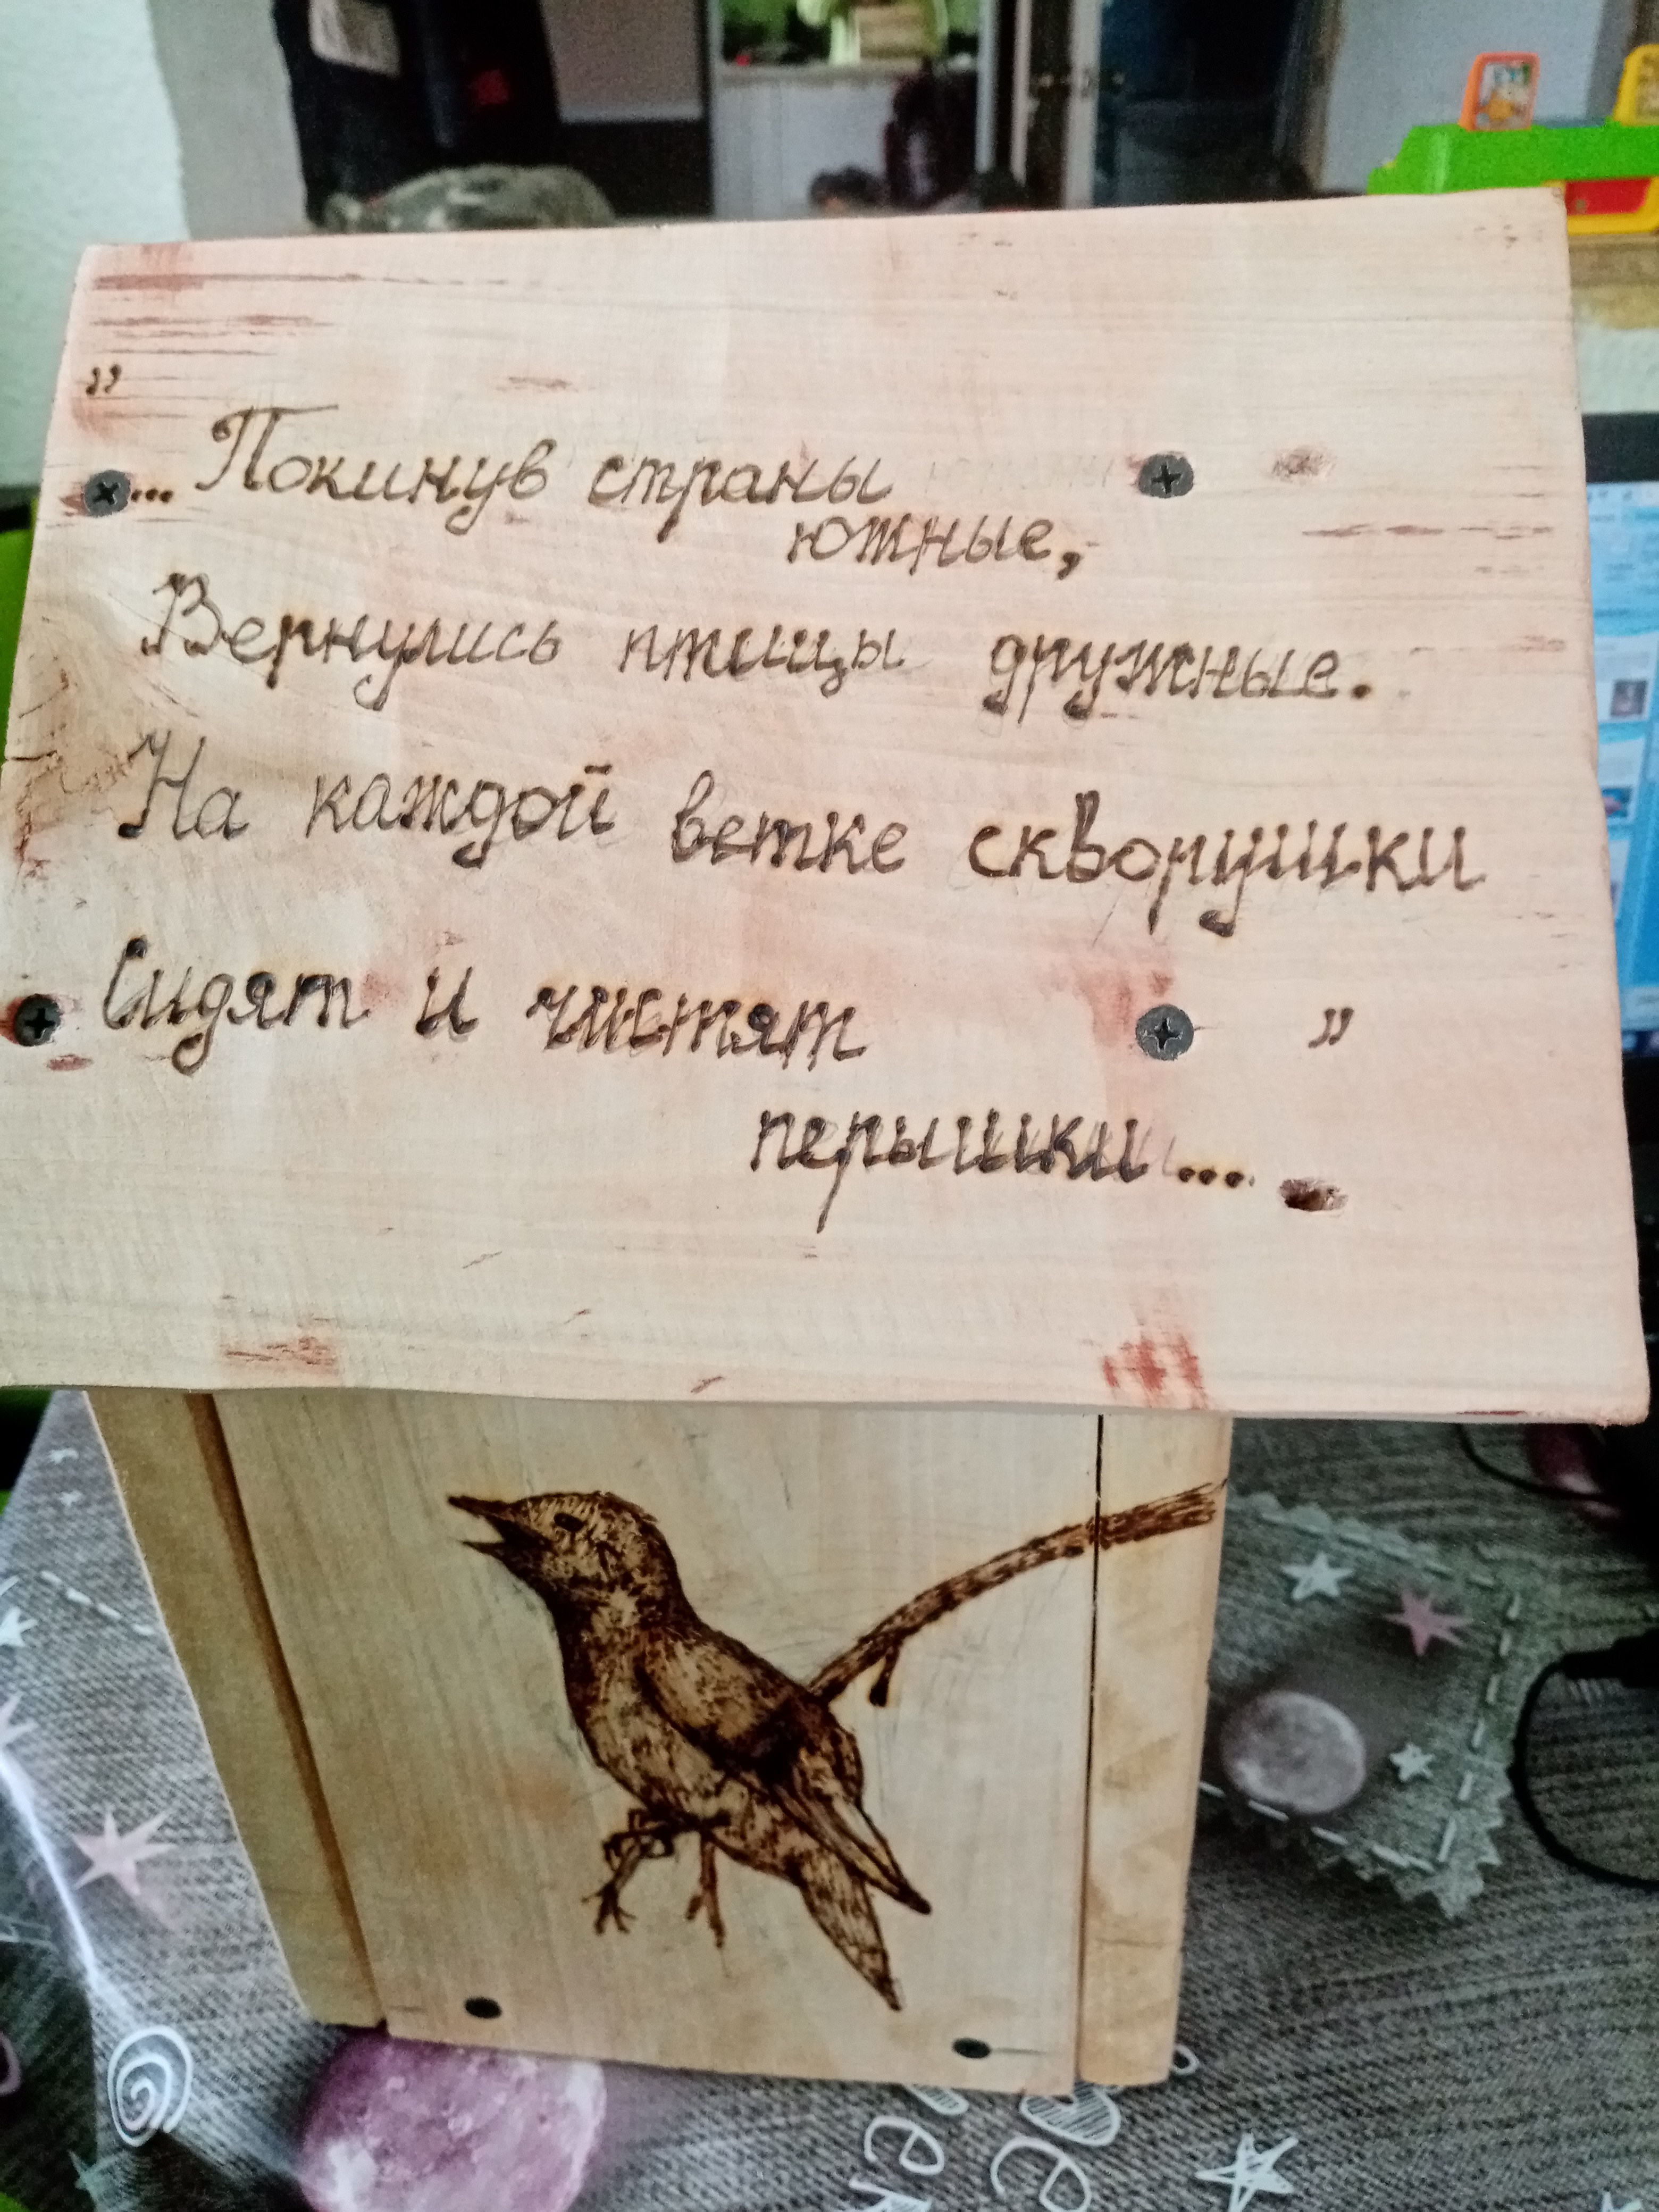 „
...Покинув страны
южные,
Вернулись птицы дружные.
На каждой ветке скворушки
Сидят и чистят
”
перышки...